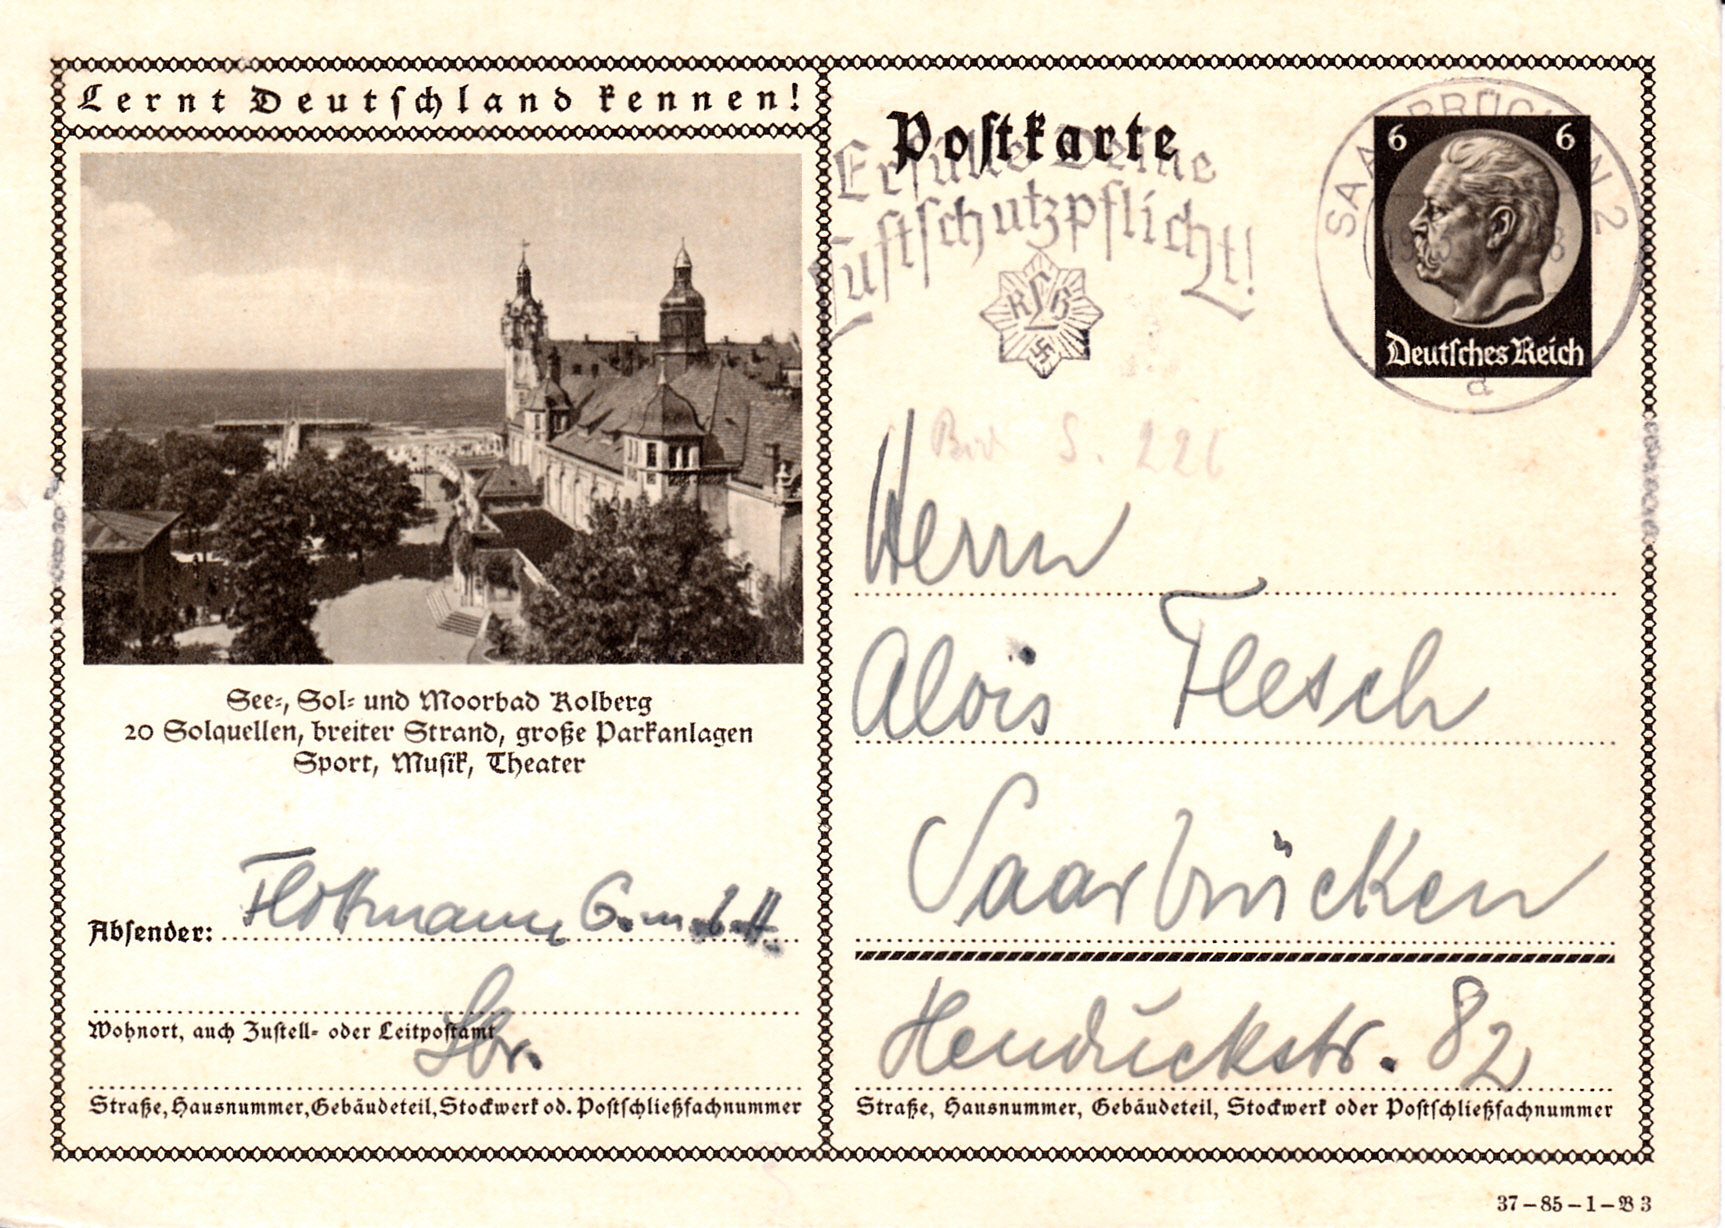 Lernt Deutschland kennen!
See-, Sol- und Moorbad Kolberg
20 Solquellen, breiter Strand, große Parkanlagen
Sport, Musik, Theater
Absender: Flottmann G.m.b.H.
Sbr.
Wohnort, auch Zustell- oder Leitpostamt
Straße, Hausnummer, Gebäudeteil, Stockwerk od. Postschließfachnummer
Postkarte
Erfülle Deine
Luftschutzpflicht!
RLB
SAARBRÜCKEN 2
a
6 6
Deutsches Reich
S. 226
Herrn
Alois Flesch
Saarbrücken
Straße, Hausnummer, Gebäudeteil, Stockwerk oder Postschließfachnummer
82
37-85-1-B 3